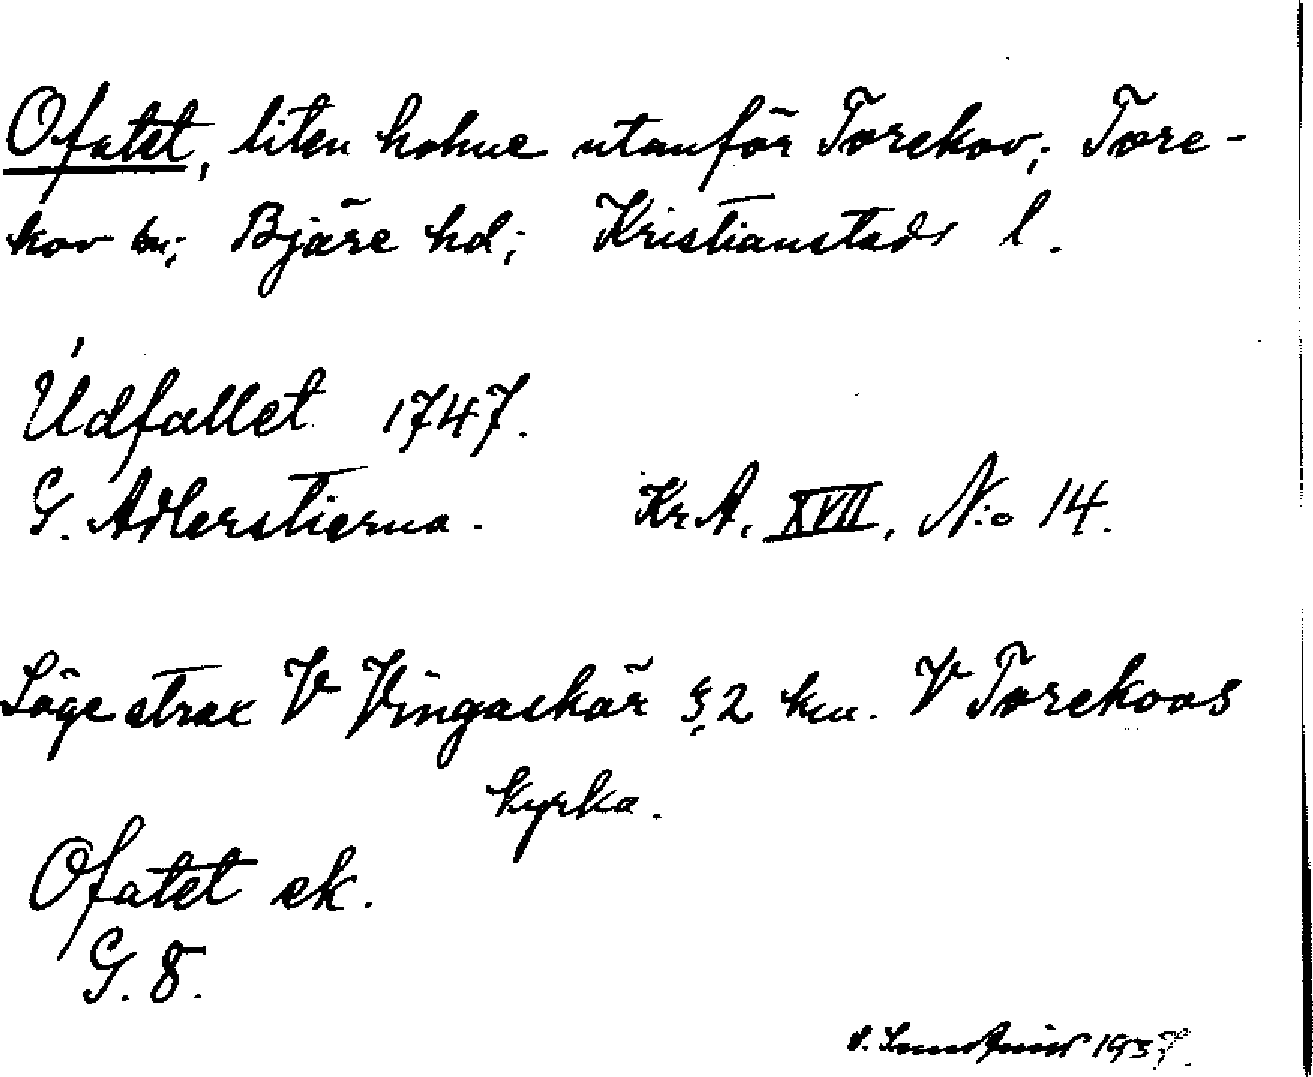 Ofatet, liten holme utanför Torekov; Tore-
kov sn; Bjäre hd; Kristianstads l.
Udfallet 1747.
G. Adlerstierna. Kr. A. XVII, N:o 14.
Läge strax V Vingaskär 2 km. V Torekovs
kyrka.
Ofatet ek.
G. 8.
1937.